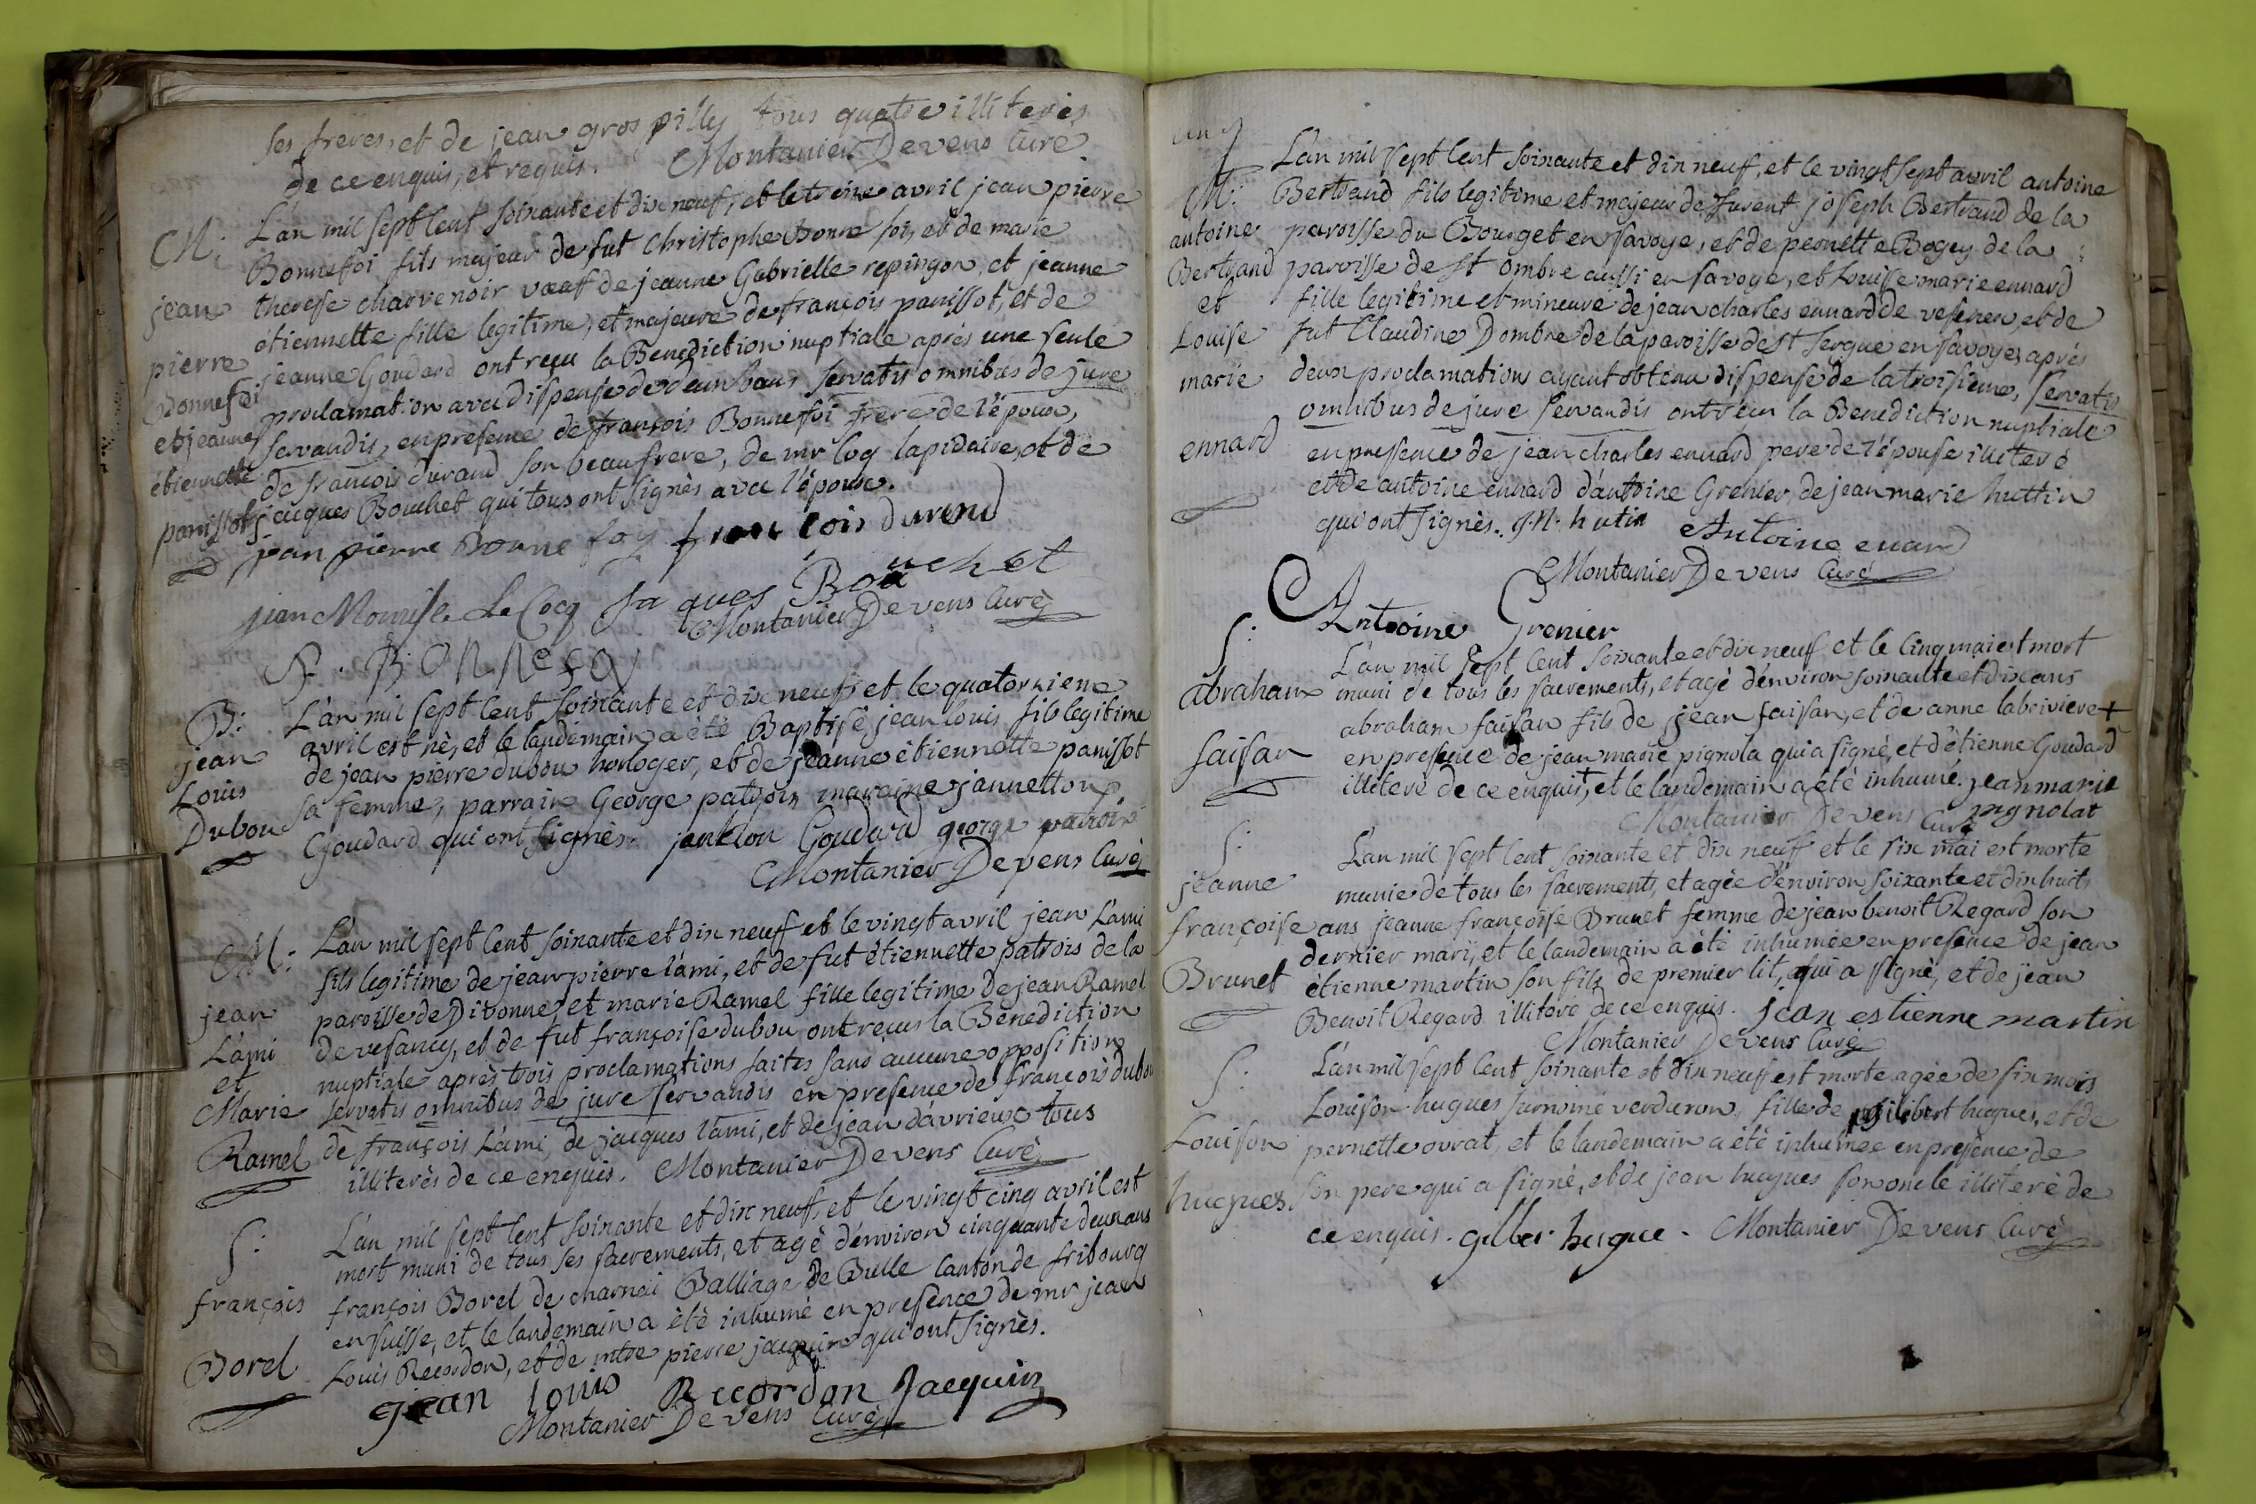 ses freres, et de jean gros pilly tous quatre illiterés
de ce enquis, et requis. Montanier Devens Curé
M:
jean
pierre
Bonnefoi
et jeanne
étiennette
panissot
L'an mil sept cent soixante et dix neuf, et le treize avril jean pierre
Bonnefoi fils majeur de fut Christophe Bonne foi, et de marie
therese charvenoir veuf de jeanne Gabrielle repingon, et jeanne
étiennette fille legitime, et majeure de françois panissot, et de
jeanne Goudard ont reçu la Benediction nuptiale aprés une seule
proclamation avec dispense de deux bans servatis omnibus de jure
servandis, en presence de françois Bonnefoi frere de l'époux,
de françois durand son beaufrere, de mr Coq lapidaire, et de
jacques Bouchet qui tous ont signés avec l'épouse.
jean pierre Bonne foy francois durend
jean Le Cocq Ja ques Bouchet
Montanier Devens Curé
F. BONNEFOY
B:
jean
Louis
Dubou
L'an mil sept cent soixante et dix neuf, et le quatorzieme
avril est né, et le landemain a été Baptisé jean louis fils legitime
de jean pierre dubou horloger, et de jeanne étiennette panissot
sa femme, parrain George patrois maraine jannetton
Goudard qui ont signés. janton Goudard george patroi
Montanier Devens Curé
M:
jean
L'ami
et
Marie
Ramel
L'an mil sept cent soixante et dix neuf et le vingt avril jean L'ami
fils legitime de jean pierre l'ami, et de fut étiennette patrois de la
paroisse de Divonne, et marie Ramel fille legitime de jean Ramel
de vesancy, et de fut françoise dubou ont reçus la Benediction
nuptiale aprés trois proclamations faites sans aucune opposition
servatis omnibus de jure servandis en presence de françois dubou
de françois L'ami, de jacques l'ami, et de jean davrieux tous
illiterés de ce enquis. Montanier Devens Curé
S:
françois
Borel
L'an mil sept cent soixante et dix neuf, et le vingt cinq avril est
mort muni de tous ses sacrements, et agé d'environ cinquante deux ans
françois Borel de charnai Balliage de Bulle Canton de fribourg
en suisse, et le landemain a été inhumé en presence de mr jean
Louis Recordon, et de mtre pierre jacquin qui ont signés.
jean louis Recordon Jacquin
Montanier Devens Curé
M:
antoine
Bertrand
et
Louise
marie
ennard
L'an mil sept cent soixante et dix neuf, et le vingt sept avril antoine
Bertrand fils legitime et majeur de furent joseph Bertrand de la
paroisse du Bourget en savoye, et de pernette Bogey de la
paroisse de st ombre aussi en savoye, et Louise marie ennard
fille legitime et mineure de jean charles ennard de vesenex et de
fut Claudine Dombre de la paroisse de st sergue en savoye, aprés
deux proclamations ayant obtenu dispense de la troisieme, servatis
omnibus de jure servandis ont reçu la Benediction nuptiale
en presence de jean charles ennard pere de l'épouse illiteré
et de antoine ennard d'antoine Grenier, de jean marie huttin
qui ont signés. J. M. hutin Antoine enard
Montanier Devens Curé
Antoine Grenier
S:
abraham
faisan
L'an mil sept cent soixante et dix neuf et le cinq mai est mort
muni de tous les sacrements, et agé d'environ soixante et dix ans
abraham faisan fils de jean faisan, et de anne labriviere +
en presence de jean marie pignola qui a signé, et d'étienne Goudard
illiteré de ce enquis +, et le landemain a été inhumé. jean marie
Montanier Devens Curé pignolat
S:
jeanne
françoise
Brunet
L'an mil sept cent soixante et dix neuf et le six mai est morte
munie de tous les sacrements, et agée d'environ soixante et dix huit
ans jeanne françoise Brunet femme de jean benoit Regard son
dernier mari, et le landemain a été inhumée en presence de jean
étienne martin son fils de premier lit, qui a signé, et de jean
Benoit Regard illiteré de ce enquis. jean estienne martin
Montanier Devens Curé
S:
Louison
hugues
L'an mil sept cent soixante et dix neuf est morte agée de six mois
Louison hugues surnomé verduron fille de philibert hugues, et de
pernette ovrat, et le landemain a été inhumée en presence de
son pere qui a signé, et de jean hugues son oncle illiteré de
ce enquis. giber hugue. Montanier Devens Curé